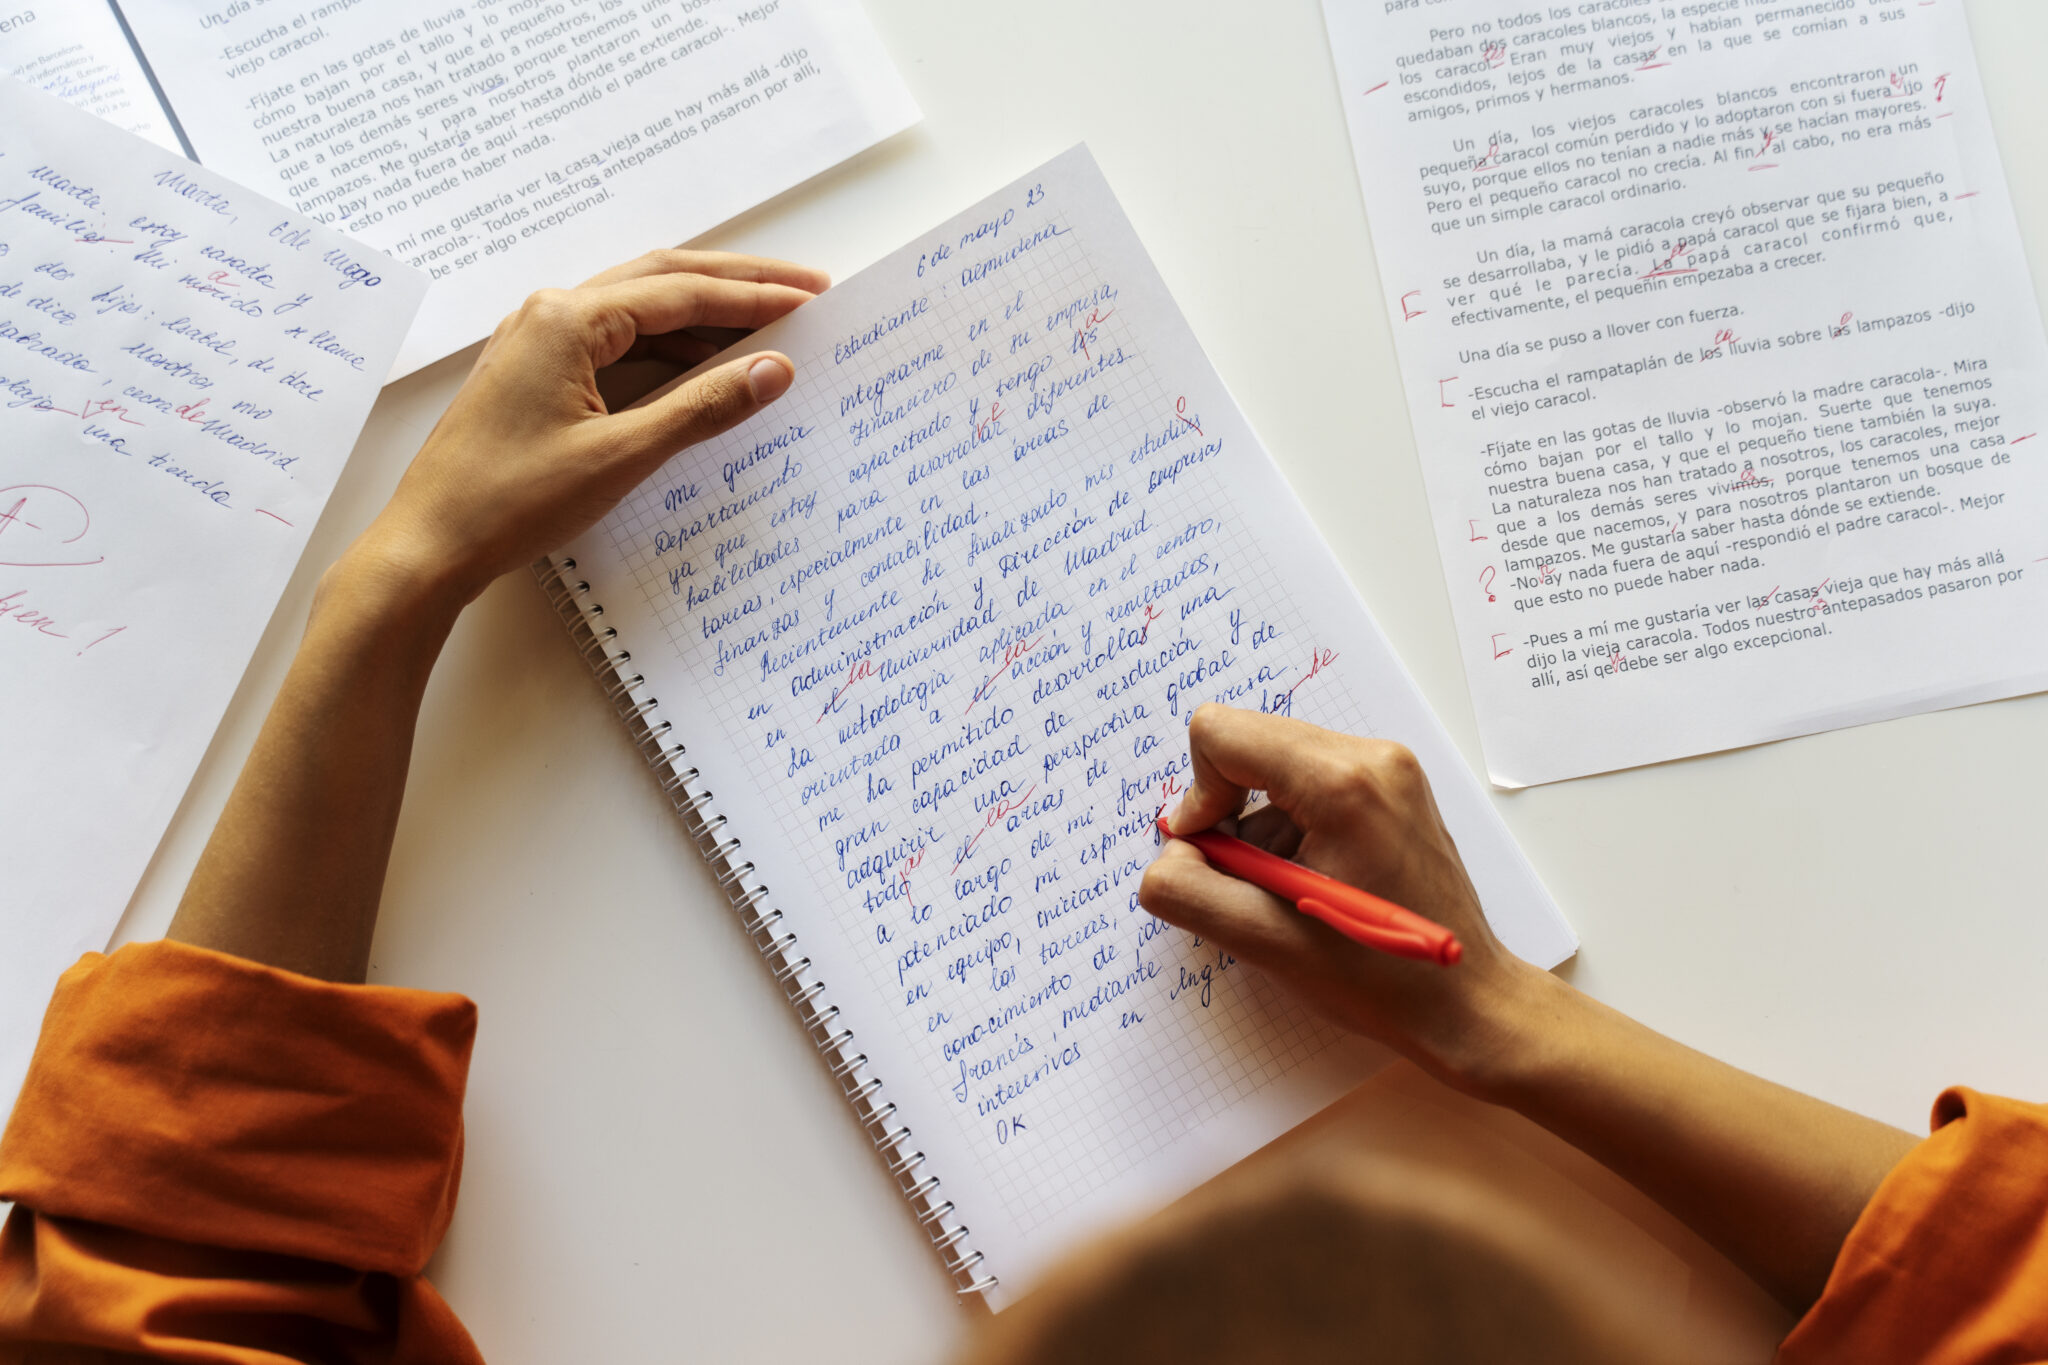 ena
vir) en Barcelona
(Levan-
(ir) de casa
Un día se
-Escucha el rampata
viejo caracol.
-Fíjate en las gotas de lluvia -obs
cómo bajan por el tallo y lo mojan.
nuestra buena casa, y que el pequeño
La naturaleza nos han tratado a nosotros, los
que a los demás seres vivos, porque tenemos una
que nacemos, y para nosotros plantaron un bos
lampazos. Me gustaría saber hasta dónde se extiende.
No hay nada fuera de aquí -respondió el padre caracol-. Mejor
esto no puede haber nada.
a mí me gustaría ver la casa vieja que hay más allá -dijo
caracola-. Todos nuestros antepasados pasaron por allí,
be ser algo excepcional.
Marta, 6 de Mayo
Marta. estoy casada y
familiar. Mi merido se llame
a
dos hijos: Isabel, de doce
de diez Nosotros vivo
cerca de Madrid.
en una tienda
A-
6 de mayo 23
Estudiante: Almudena
Me gustaria integrarme en el
Departamento Financiero de su empresa,
ya que estoy capacitado y tengo los
a
habilidades para desarrollar diferentes
tareas, especialmente en las áreas de
finanzas y contabilidad.
Recientemente he finalizado mis estudios
o
en administración y Dirección de Empresas
en el Universidad de Madrid.
la
La metodología aplicada en el centro,
orientada a el acción y resultados,
la
me ha permitido desarrollar una
gran capacidad de resolución y
adquirir una perspectiva global de
tado el areas de la empresa.
a lo largo de mi formac hoy he
potenciado mi espiritu
en equipo, iniciativa y
en las tareas, a
conocimiento de idi
francés, mediante
intensivos en Ingl
OK
Pero no todos los caracoles
quedaban dos caracoles blancos, la especie más
los caracol. Eran muy viejos y habían permanecido bien
escondidos, lejos de la casas en la que se comían a sus
amigos, primos y hermanos.
Un día, los viejos caracoles blancos encontraron un
pequeña caracol común perdido y lo adoptaron con si fuera ijo
suyo, porque ellos no tenían a nadie más y se hacían mayores.
Pero el pequeño caracol no crecía. Al fin i al cabo, no era más
que un simple caracol ordinario.
Un día, la mamá caracola creyó observar que su pequeño
se desarrollaba, y le pidió a papá caracol que se fijara bien, a
ver qué le parecía. La papá caracol confirmó que,
efectivamente, el pequeñín empezaba a crecer.
Una día se puso a llover con fuerza.
-Escucha el rampataplán de los lluvia sobre las lampazos -dijo
la
el viejo caracol.
-Fíjate en las gotas de lluvia -observó la madre caracola-. Mira
cómo bajan por el tallo y lo mojan. Suerte que tenemos
nuestra buena casa, y que el pequeño tiene también la suya.
La naturaleza nos han tratado a nosotros, los caracoles, mejor
que a los demás seres vivimos, porque tenemos una casa
os
desde que nacemos, y para nosotros plantaron un bosque de
lampazos. Me gustaría saber hasta dónde se extiende.
? -No ay nada fuera de aquí -respondió el padre caracol-. Mejor
que esto no puede haber nada.
-Pues a mí me gustaría ver las casas vieja que hay más allá
dijo la vieja caracola. Todos nuestro antepasados pasaron por
allí, así qe debe ser algo excepcional.